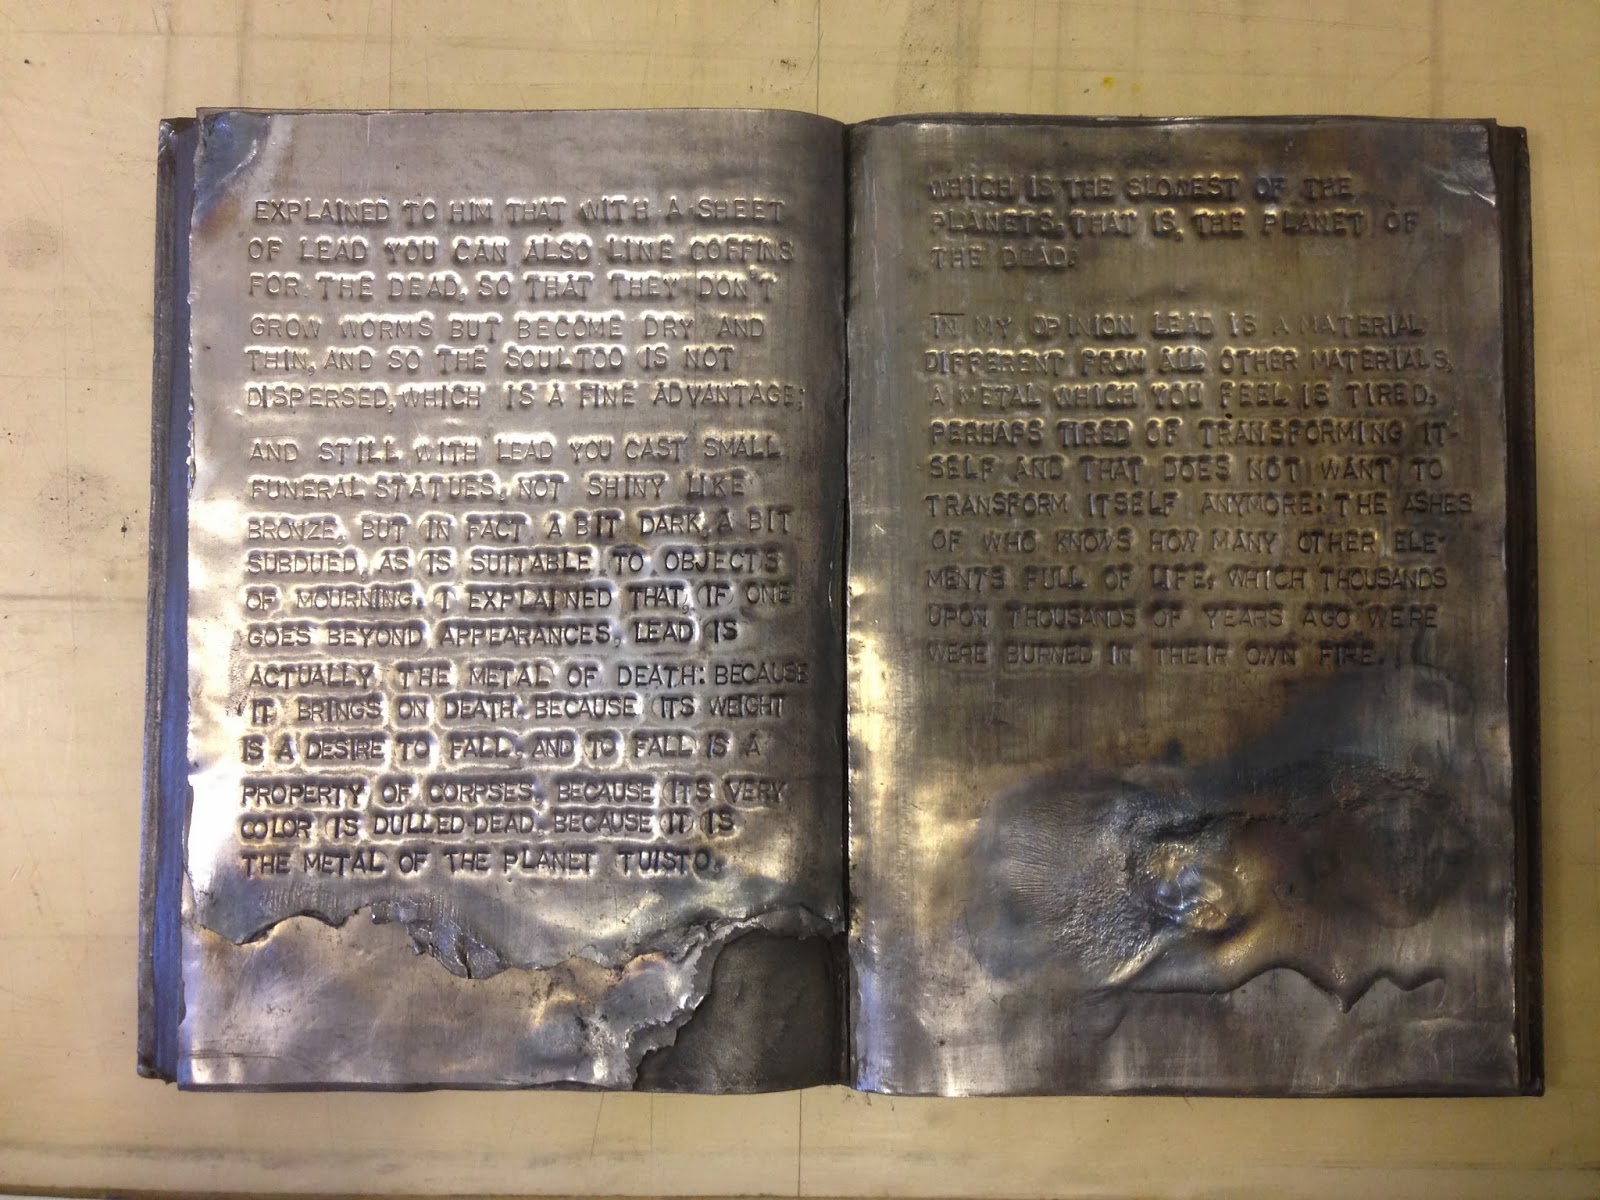 EXPLAINED TO HIM THAT WITH A SHEET
OF LEAD YOU CAN ALSO LINE COFFINS
FOR THE DEAD, SO THAT THEY DON'T
GROW WORMS BUT BECOME DRY AND
THIN, AND SO THE SOUL TOO IS NOT
DISPERSED, WHICH IS A FINE ADVANTAGE;
AND STILL WITH LEAD YOU CAST SMALL
FUNERAL STATUES, NOT SHINY LIKE
BRONZE, BUT IN FACT A BIT DARK, A BIT
SUBDUED, AS IS SUITABLE TO OBJECTS
OF MOURNING. I EXPLAINED THAT, IF ONE
GOES BEYOND APPEARANCES, LEAD IS
ACTUALLY THE METAL OF DEATH: BECAUSE
IT BRINGS ON DEATH, BECAUSE ITS WEIGHT
IS A DESIRE TO FALL, AND TO FALL IS A
PROPERTY OF CORPSES, BECAUSE ITS VERY
COLOR IS DULLED-DEAD, BECAUSE IT IS
THE METAL OF THE PLANET TUISTO,
WHICH IS THE SLOWEST OF THE
PLANETS, THAT IS, THE PLANET OF
THE DEAD.
IN MY OPINION LEAD IS A MATERIAL
DIFFERENT FROM ALL OTHER MATERIALS,
A METAL WHICH YOU FEEL IS TIRED,
PERHAPS TIRED OF TRANSFORMING IT-
SELF AND THAT DOES NOT WANT TO
TRANSFORM ITSELF ANYMORE: THE ASHES
OF WHO KNOWS HOW MANY OTHER ELE-
MENTS FULL OF LIFE, WHICH THOUSANDS
UPON THOUSANDS OF YEARS AGO WERE
WERE BURNED IN THEIR OWN FIRE.